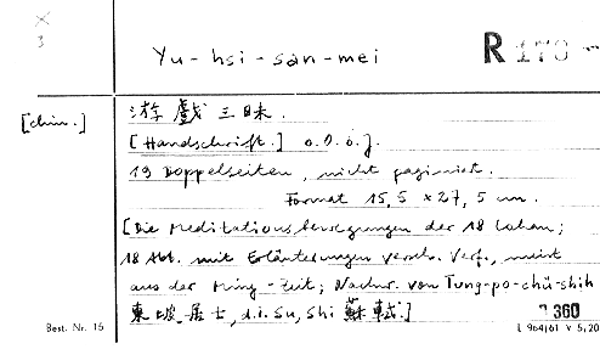 3
Yu-hsi-san-mei
R 170
[chin.] 游戲三昧.
[Handschrift.] o.O.o.J.
19 Doppelseiten, nicht paginiert.
Format 15,5 x 27,5 cm.
[Die Meditationsbewegungen der 18 Lohan;
18 Abb. mit Erläuterungen versch. Verf., meist
aus der Ming-Zeit; Nachw. von Tung-po-chü-shih
東坡居士, d.i. Su, Shi 蘇軾.]
360
Best. Nr. 15
L 964/61 V 5,20